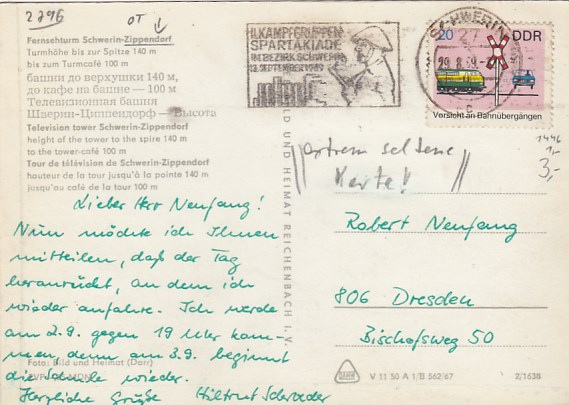 2796
OT ↓
Fernsehturm Schwerin-Zippendorf
Turmhöhe bis zur Spitze 140 m
bis zum Turmcafé 100 m
башни до верхушки 140 м,
до кафе на башне — 100 м
Телевизионная башня
Шверин-Циппендорф — Высота
Television tower Schwerin-Zippendorf
height of the tower to the spire 140 m
to the tower-café 100 m
Tour de télévision de Schwerin-Zippendorf
hauteur de la tour jusqu'à la pointe 140 m
jusqu'au café de la tour 100 m
Lieber Herr Neufang!
Nun möchte ich Ihnen
mitteilen, daß der Tag
heranrückt, an dem ich
wieder anfahre. Ich werde
am 2.9. gegen 19 Uhr kom-
men, denn am 3.9. beginnt
die Schule wieder.
Herzliche Grüße Hiltrut Schröder
Foto: Bild und Heimat (Darr)
MDN
BILD UND HEIMAT REICHENBACH I. V.
II. KAMPFGRUPPEN-
SPARTAKIADE
IM BEZIRK SCHWERIN
SEPTEMBER 1969
SCHWERIN
27
29.8.69
c
20 DDR
Vorsicht an Bahnübergängen
1446
1,-
3,-
extrem seltene
Karte!
Robert Neufang
806 Dresden
Bischofsweg 50
V 11 50 A 1/B 562/67
2/1638